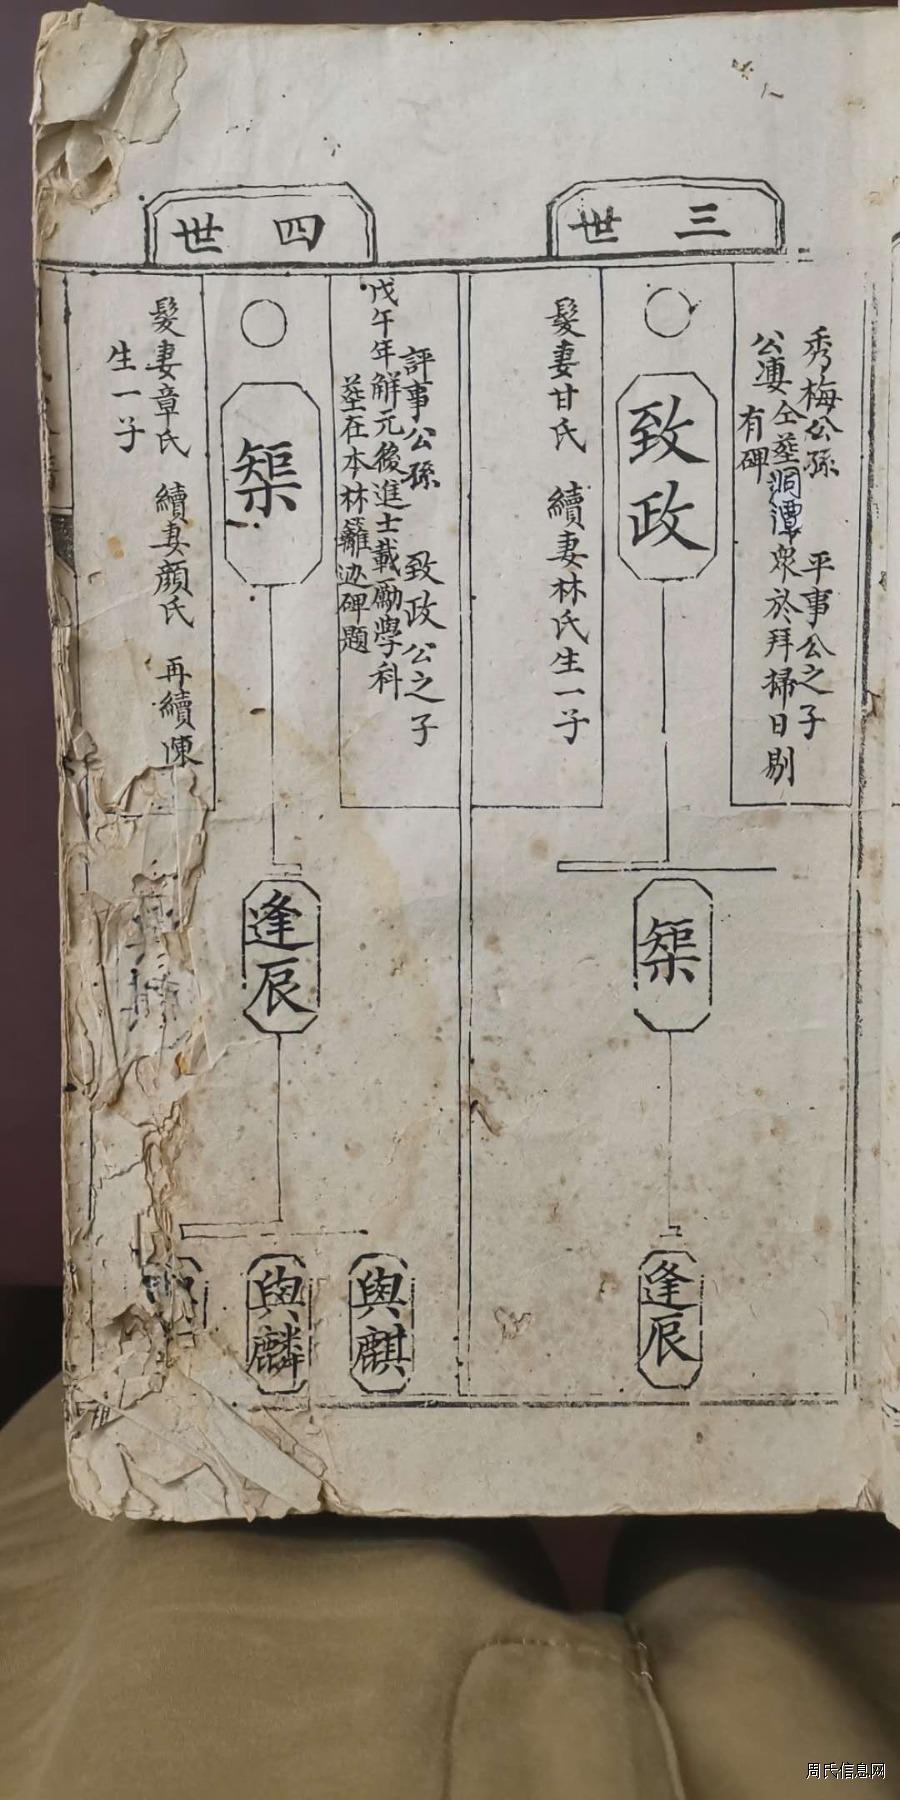 三世
秀梅公孫 平事公之子
公凄仝塟洞潭衆於拜掃日剔
有碑
致政
髮妻甘氏 續妻林氏生一子
榘
逢辰
四世
評事公孫 致政公之子
戊午年解元後進士載勵學科
塟在本林籬边碑題
榘
髮妻章氏 續妻顔氏 再續陳
生一子
逢辰
與麒
與麟
周氏信息网